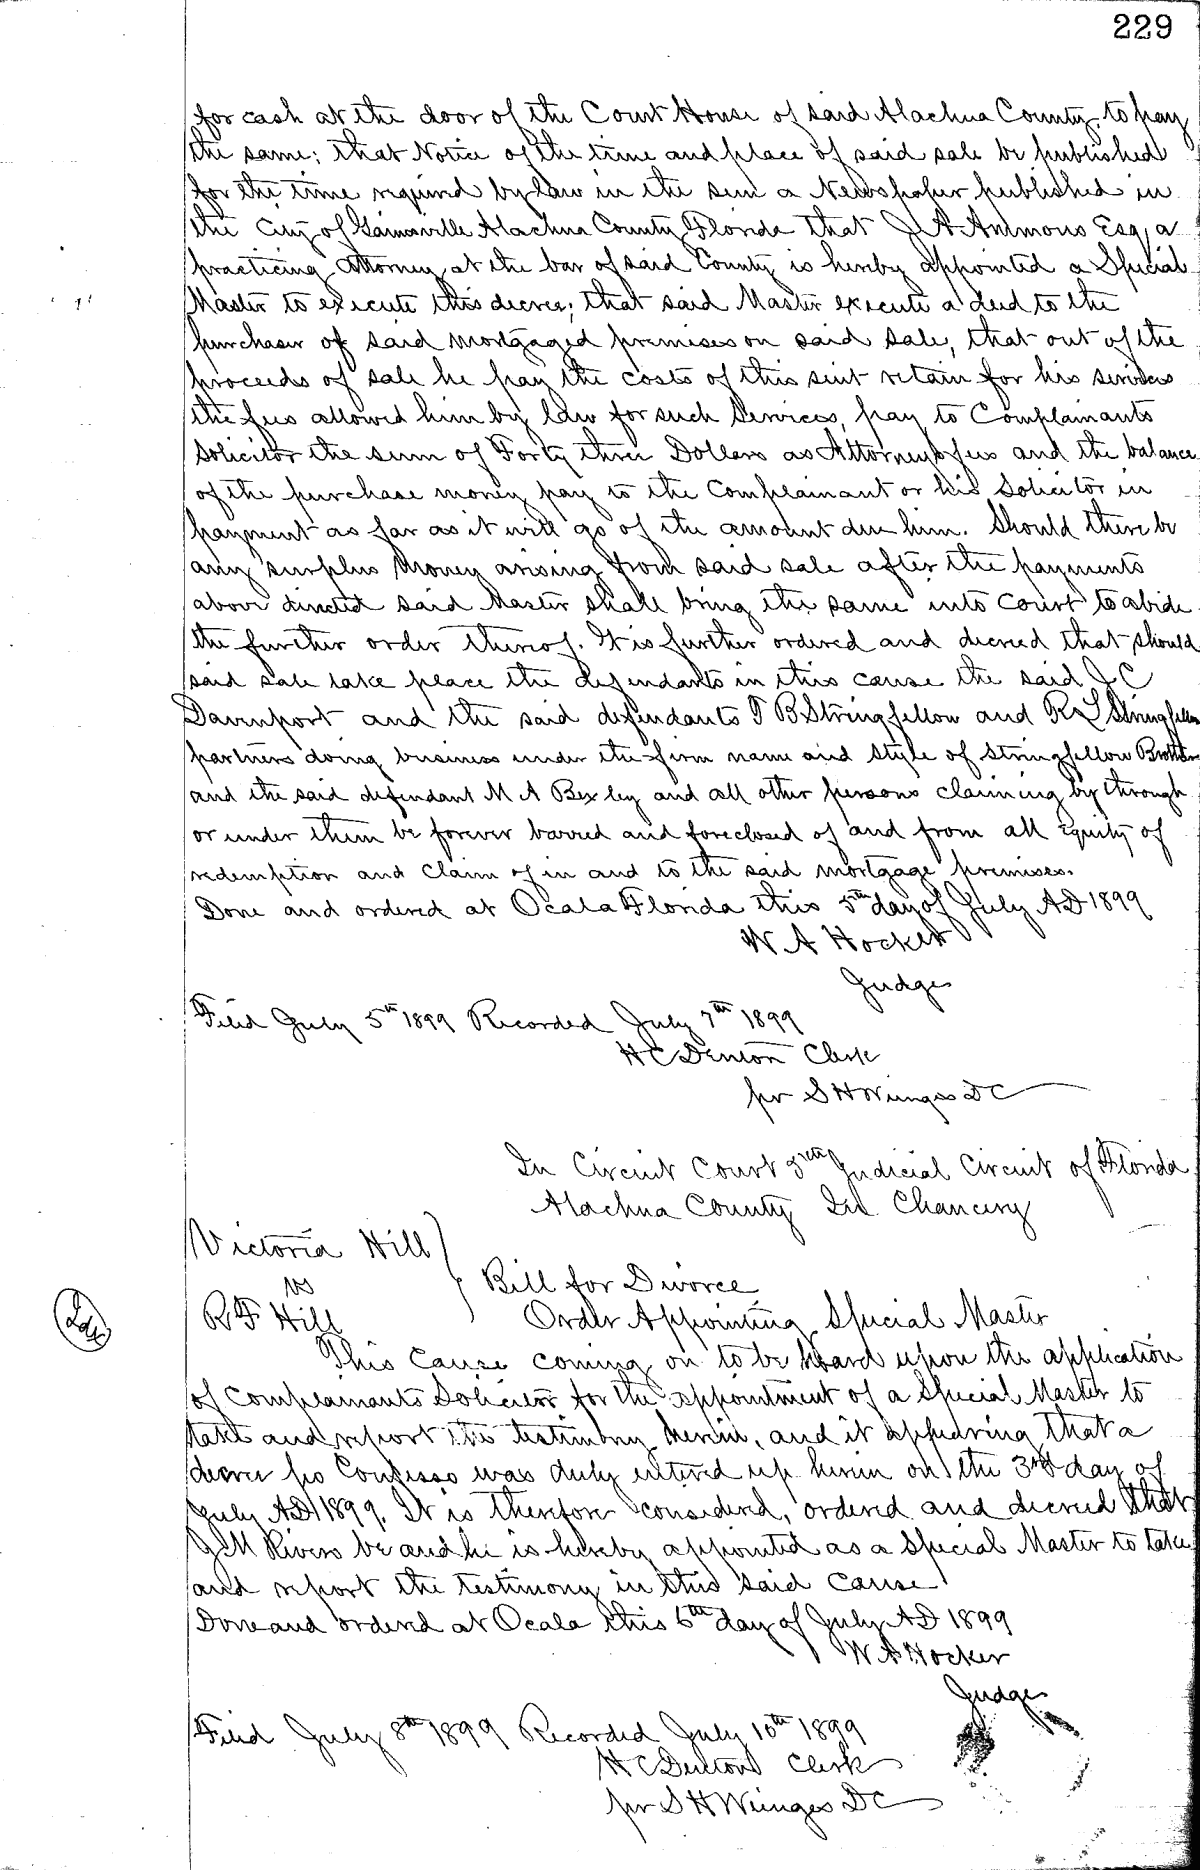 229
for cash at the door of the Court House of said Alachua County, to pay
the same; that Notice of the time and place of said sale be published
for the time required by law in the sun a Newspaper published in
the City of Gainsville Alachua County Florida that J A Ammons Esq, a
practicing Attorney at the bar of said County is hereby appointed a Special
Master to execute this decree; that said Master execute a deed to the
purchaser of said mortgaged premises on said sale, that out of the
proceeds of sale he pay the costs of this suit retain for his services
the fees allowed him by law for such Services, pay to Complainants
Solicitor the sum of Forty three Dollars as Attorneys fees and the balance
of the purchase money pay to the Complainant or his Solicitor in
payment as far as it will go of the amount due him. Should there be
any surplus money arising from said sale after the payments
above directed said Master shall bring the same into Court to abide
the further order thereof. It is further ordered and decreed that should
said sale take place the defendants in this cause the said J C
Davenport and the said defendants T B Stringfellow and R L Stringfellow
partners doing business under the firm name and style of Stringfellow Brothers
and the said defendant M A Bexley and all other persons claiming by through
or under them be forever barred and foreclosed of and from all Equity of
redemption and claim of in and to the said mortgage premises.
Done and ordered at Ocala Florida this 5th day of July AD 1899
W A Hocker
Judge
Filed July 5th 1899 Recorded July 7th 1899
H C Denton Clerk
per S H Wienges DC
In Circuit Court 5th Judicial Circuit of Florida
Alachua County In Chancery
Victoria Hill
vs
Bill for Divorce
R F Hill
Order Appointing Special Master
This Cause coming on to be heard upon the application
of Complainants Solicitor for the appointment of a Special Master to
take and report the testimony herein, and it appearing that a
decree pro Confesso was duly entered up herein on the 3rd day of
July AD 1899. It is therefore considered, ordered and decreed that
J M Rivers be and he is hereby appointed as a Special Master to take
and report the testimony in this said cause
Done and ordered at Ocala this 6th day of July AD 1899
W A Hocker
Judge
Filed July 8th 1899 Recorded July 10th 1899
H C Denton Clerk
per S H Wienges DC